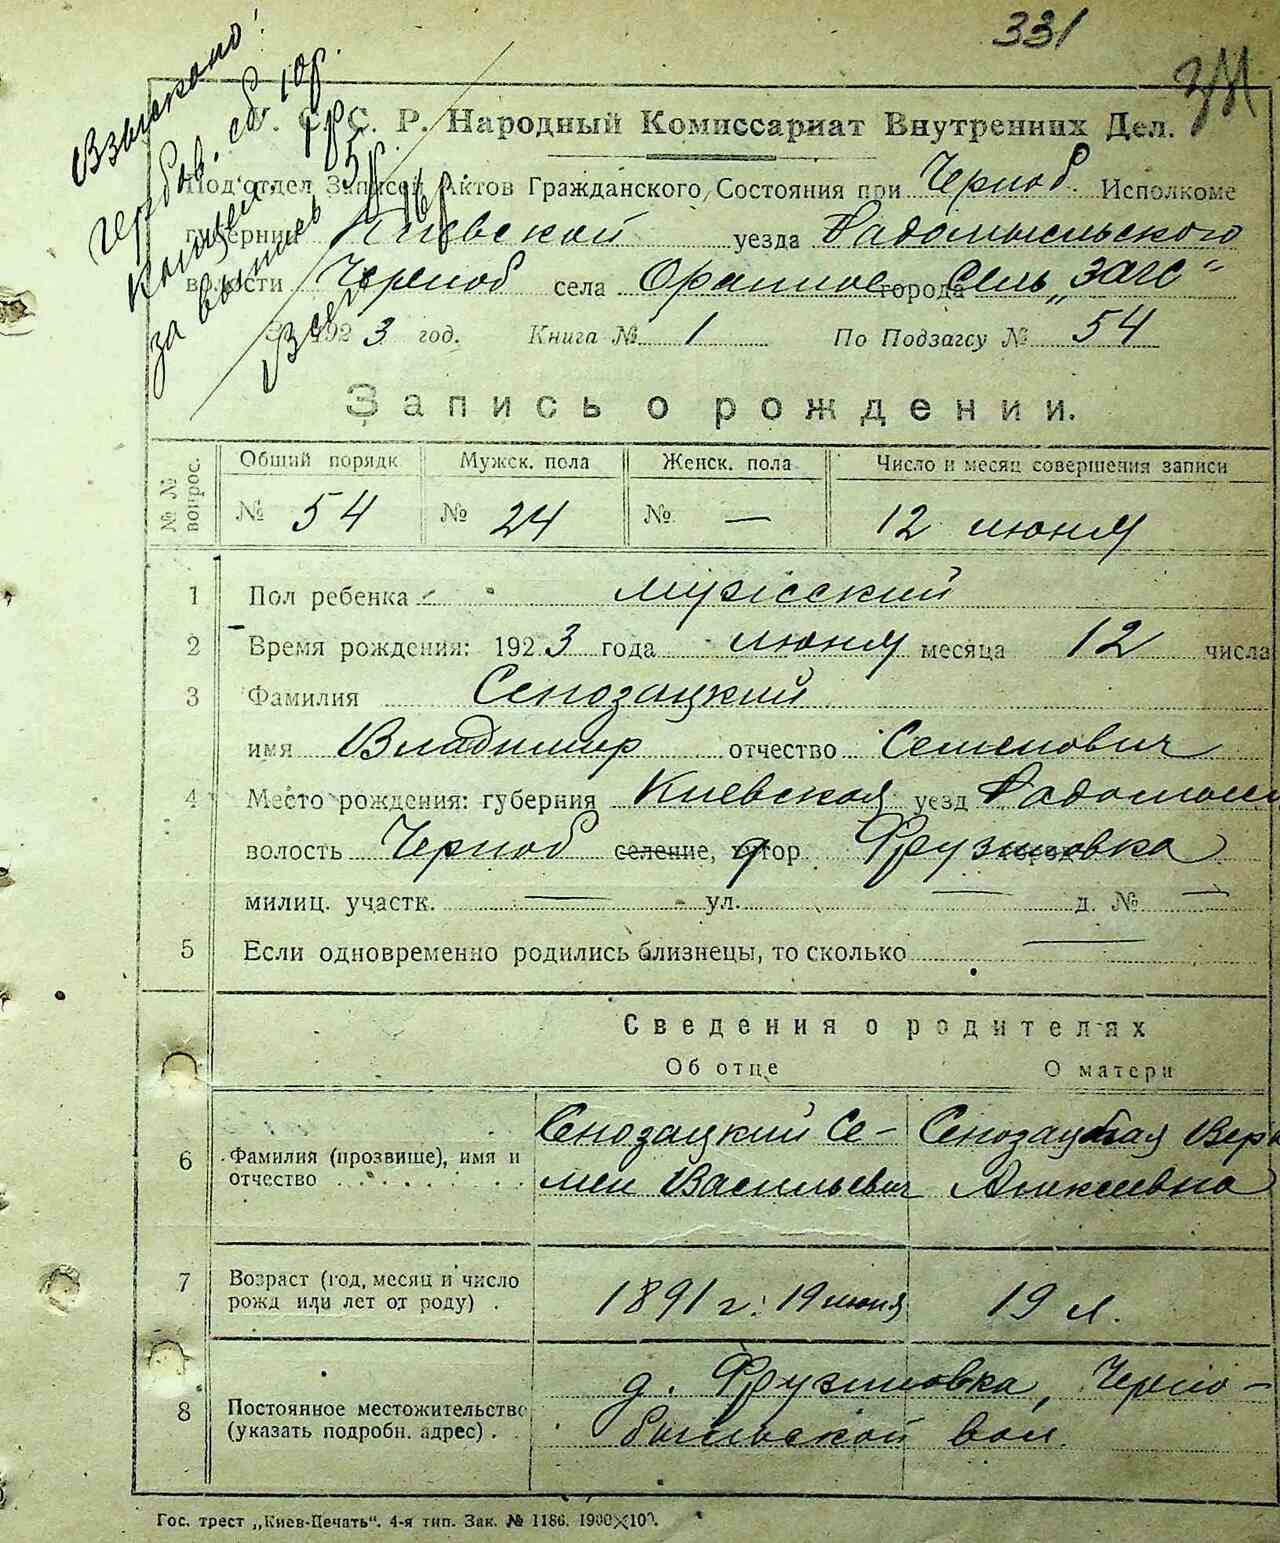 331
Взыскано!
гербов. сб. 10р.
Канцел. 1р
за выпись 5р
Всего 16р
С. С. Р. Народный Комиссариат Внутренних Дел.
Под'отдел Записей Актов Гражданского Состояния при Черноб. Исполкоме
губернии Киевской уезда Радомысльского
волости Черноб села Оранное города Сель „Загс"
За 1923 год. Книга № 1 По Подзагсу № 54
Запись о рождении.
№№ вопрос. Общий порядк Мужск. пола Женск. пола Число и месяц совершения записи
№ 54 № 24 № — 12 июня
1 Пол ребенка мужской
2 Время рождения: 1923 года июня месяца 12 числа
3 Фамилия Сенозацкий
имя Владимир отчество Семенович
4 Место рождения: губерния Киевская уезд Радомысл
волость Черноб селение, хутор Фрузиновка
милиц. участк. — ул. — д. № —
5 Если одновременно родились близнецы, то сколько —
Сведения о родителях
Об отце О матери
6 Фамилия (прозвище), имя и отчество Сенозацкий Се-
мен Васильевич
Сенозацкая Вера
Алексеевна
7 Возраст (год, месяц и число рожд или лет от роду) . 1891 г. 19 июня 19 л.
8 Постоянное местожительство (указать подробн. адрес) . . д. Фрузиновка, Черно-
быльской вол.
Гос. трест „Киев-Печать". 4-я тип. Зак. № 1186. 1900×100.